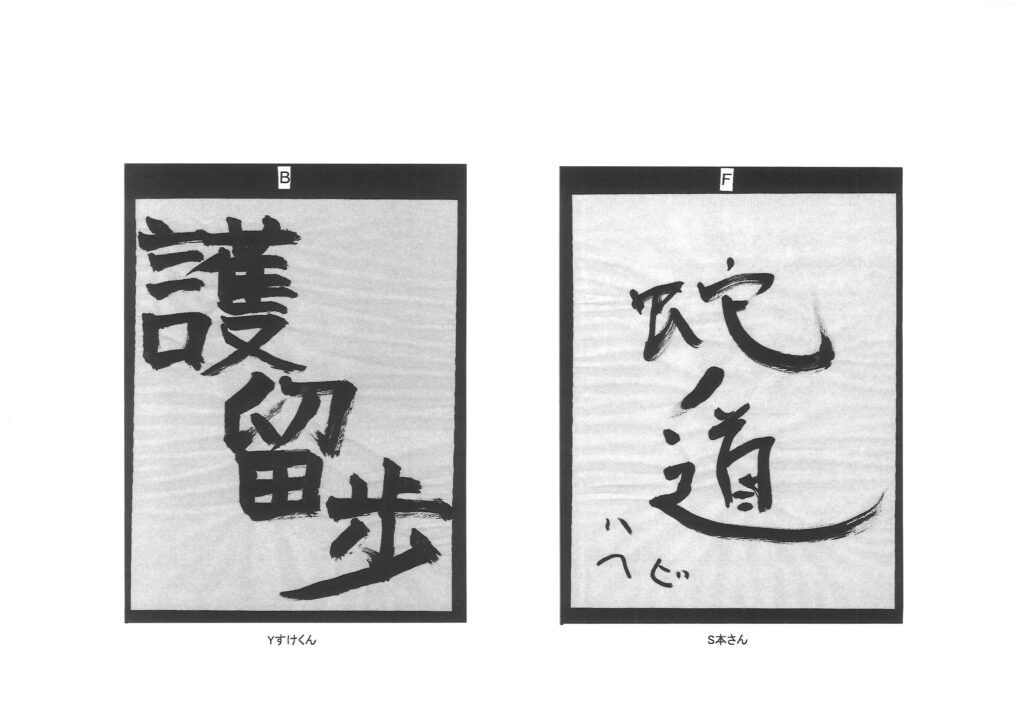 B
護
留
歩
Yすけくん
F
蛇
道
ハ
ヘビ
S本さん